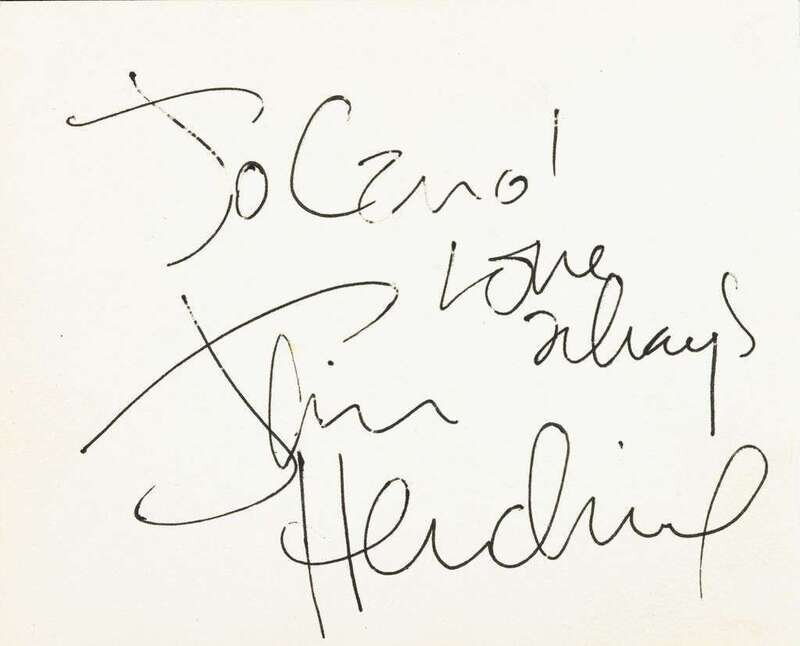 To Carol
Love
always
Jimi
Hendrix